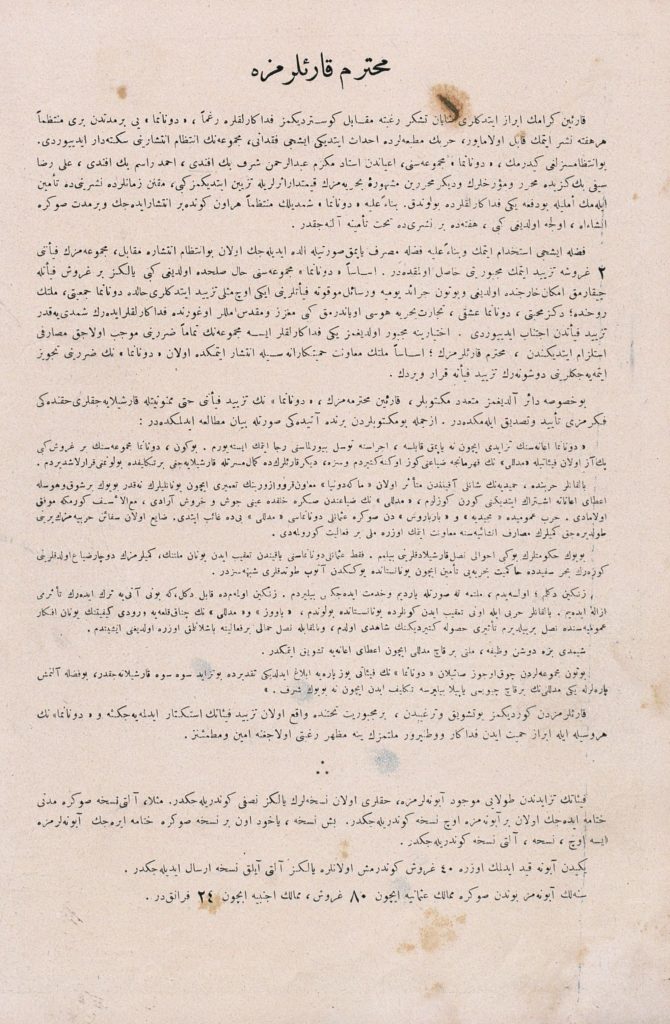 محترم قارئلرمزه
قارئین کرامك ابراز ایتدکلری شایان تشکر رغبته مقابل کوستردیکمز فداکارلقلره رغماً، «دونانما» یی بر مدتدن بری منتظماً
هر هفته نشر ایتمك قابل اولامایور، حربك مطبعه‌لرده احداث ایتدیکی ایشجی فقدانی، مجموعه‌نك انتظام انتشارینی سکته‌دار ایدییوردی.
بو انتظامسزلغی کیدرمك، «دونانما» مجموعه‌سنی، اعیاندن استاد مکرم عبدالرحمن شرف بك افندی، احمد راسم بك افندی، علی رضا
سیفی بك کبی کزیده محرر ومؤرخلرك ودیکر محررین مشهورهٔ بحریه‌مزك قیمتدار اثرلریله تزیین ایتدیکمز کبی، مقنن زمانلرده نشرینی ده تأمین
ایله‌مك املیله بو دفعه یکی فداکارلقلرده بولوندق. بناءً علیه «دونانما» شمدیلك منتظماً هر اون کونده بر انتشار ایده‌جك وبر مدت صوکره
انشاءالله، اولجه اولدیغی کبی، هفته‌ده بر نشری ده تحت تأمینه آلنه‌جقدر.
فضله ایشجی استخدام ایتمك وبناءً علیه فضله مصرف یاپمق صورتیله الده ایدیله‌جك اولان بو انتظام انتشاره مقابل، مجموعه‌مزك فیأتنی
۲ غروشه تزیید ایتمك مجبوریتی حاصل اولمقده‌در. اساساً «دونانما» مجموعه‌سنی حال صلحده اولدیغی کبی یالکز بر غروش فیأتله
چیقارمق امکان خارجنده اولدیغی وبوتون جرائد یومیه ورسائل موقوته فیأتلرینی ایکی اوچ مثلی تزیید ایتدکلری حالده دونانما جمعیتی، ملتك
روحنده؛ دکز محبتی، دونانما عشقی، تجارت بحریه هوسی اویاندرمق کبی معزز ومقدس امللر اوغورنده فداکارلقلر ایده‌رك شمدی‌یه قدر
تزیید فیأتدن اجتناب ایدییوردی. اختیارینه مجبور اولدیغمز یکی فداکارلقلر ایسه مجموعه‌نك تماماً ضررینی موجب اولاجق مصارفی
استلزام ایتدیکندن، محترم قارئلرمزك؛ اساساً ملتك معاونت حمیتکارانه‌سیله انتشار ایتمکده اولان «دونانما» نك ضررینی تجویز
ایتمه‌یه‌جکلرینی دوشونه‌رك تزیید فیأته قرار ویردك.
بو خصوصه دائر آلدیغمز متعدد مکتوبلر، قارئین محترمه‌مزك، «دونانما» نك تزیید فیأتنی حتی ممنونیتله قارشیلایه‌جقلری حقنده‌کی
فکرمزی تأیید وتصدیق ایله‌مکده‌در. ازجمله بو مکتوبلردن برنده آتیده‌کی صورتله بیان مطالعه ایدلمکده‌در:
«دونانما اعانه‌سنك تزایدی ایچون نه یاپمق قابلسه، اجراسنه توسل بیورلماسنی رجا ایتمك ایسته‌یورم. بوکون، دونانما مجموعه‌سنك بر غروش کبی
پك آز اولان فیئاتیله «مدللی» نك قهرمانجه ضیاعنی کوز اوکنه کتیردم وسزه، دیکر قارئلرك ده کمال مسرتله قارشیلایه‌جغی بر تکلیفده بولونمغی قرارلاشدیردم.
بالقانلر حربنده، حمیدیه‌نك شانلی آقینلندن متأثر اولان «ماکه‌دونیا» معاون قروازورینك تعمیری ایچون یونانلیلرك نه‌قدر بویوك بر شوق وهوسله
اعطای اعاناته اشتراك ایتدیکنی کورن کوزلرم، «مدللی» نك ضیاعندن صکره خلقده عینی جوش و خروش آرادی، مع‌الاسف کورمکه موفق
اولامادی. حرب عمومیده «مجیدیه» و «بارباروس» دن صوکره عثمانلی دونانماسی «مدللی» یی ده غائب ایتدی. ضایع اولان سفائن حربیه‌مزك یرینی
طولدیره‌جق کمیلرك مصارف انشائیه‌سنه معاونت ایتمك اوزره ملی بر فعالیت کورولمه‌دی.
بویوك حکومتلرك بوکبی احوالی نصل قارشیلادقلرینی بیلمم. فقط عثمانلی دونانماسنی یاقیندن تعقیب ایدن یونان ملتنك، کمیلرمزك دوچار ضیاع اولدقلرینی
کوره‌رك بحر سفیدده حاکمیت بحریه‌یی تأمین ایچون یونانستانده یوکسکدن آتوب طوتدقلری شبهه‌سزدر.
زنکین دکلم؛ اولسه‌یدم، ملتمه نه صورتله یاردیم وخدمت ایده‌جکمی بیلیردم. زنکین اولمه‌م ده قابل دکل، که بونی آتی‌یه ترك ایده‌رك تأثرمی
ازاله ایده‌یم. بالقانلر حربی ایله اونی تعقیب ایدن کونلرده یونانستانده بولوندم، «یاووز» و «مدللی» نك چناق‌قلعه‌یه ورودی کیفیتنك یونان افکار
عمومیه‌سنده نصل بر بیلدیرم تأثیری حصوله کتیردیکنك شاهدی اولدم، وبالمقابله نصل حمالی بر فعالیته باشلاندیغی اوزره اولدیغنی ایشیتدم.
شیمدی بزه دوشن وظیفه، ملتی بر قاچ مدللی ایچون اعطای اعانه‌یه تشویق ایتمکدر.
بوتون مجموعه‌لردن چوق اوجوز صاتیلان «دونانما» نك فیئاتی یوز پاره‌یه ابلاغ ایدلدیکی تقدیرده بو تزاید سوه سوه قارشیلانه‌جقدر، بو فضله آلتمش
پاره‌لرله یکی مدللی‌نك بر قاچ چیویسی یاپیلا بیلیرسه تکلیف ایدن ایچون نه بویوك شرف.»
قارئلرمزدن کوردیکمز بو تشویق وترغیبدن، بر مجبوریت تحتنده واقع اولان تزیید فیئاتك استکثار ایدلمه‌یه‌جکنه و «دونانما» نك
هر وسیله ایله ابراز حمیت ایدن فداکار ووطنپرور ملتمزك ینه مظهر رغبتی اولاجغنه امین ومطمئنز.
فیئاتك تزایدندن طولایی موجود آبونه‌لرمزه، حقلری اولان نسخه‌لرك یالکز نصفی کوندریله‌جکدر. مثلا، آلتی نسخه صوکره مدتی
ختامه ایده‌جك اولان بر آبونه‌مزه اوچ نسخه کوندریله‌جکدر. بش نسخه، یاخود اون بر نسخه صوکره ختامه ایره‌جك آبونه‌لرمزه
ایسه اوچ، نسخه، آلتی نسخه کوندریله‌جکدر.
یکیدن آبونه قید ایدلمك اوزره ۴۰ غروش کوندرمش اولانلره یالکز آلتی آیلق نسخه ارسال ایدیله‌جکدر.
سنه‌لك آبونه‌مز بوندن صوکره ممالك عثمانیه ایچون ۸۰ غروش، ممالك اجنبیه ایچون ۲۴ فرانقدر.